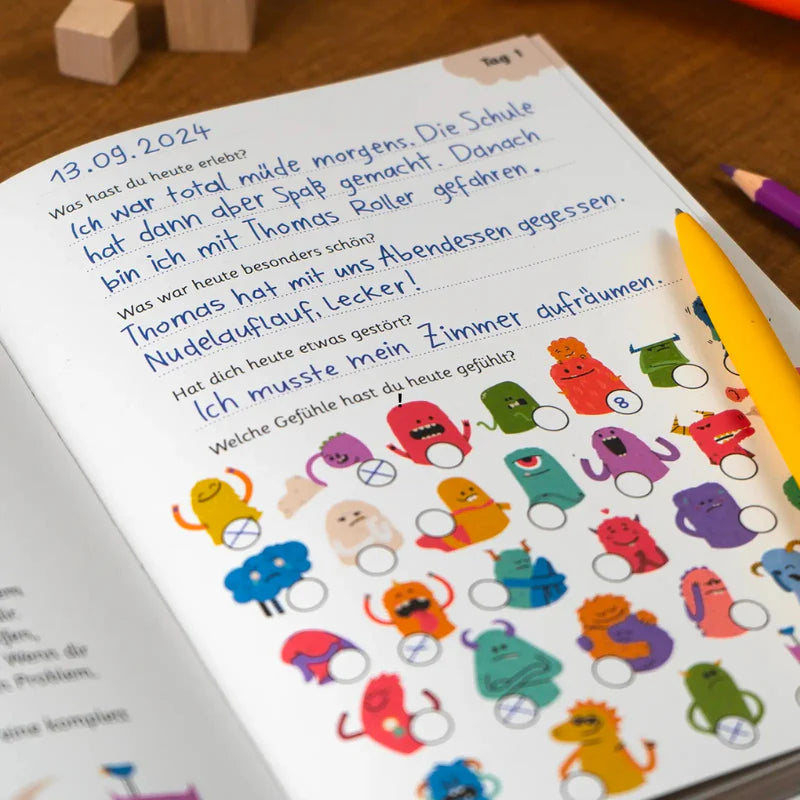 Tag 1
13.09.2024
Was hast du heute erlebt?
Ich war total müde morgens. Die Schule
hat dann aber Spaß gemacht. Danach
bin ich mit Thomas Roller gefahren.
Was war heute besonders schön?
Thomas hat mit uns Abendessen gegessen.
Nudelauflauf, Lecker!
Hat dich heute etwas gestört?
Ich musste mein Zimmer aufräumen...
Welche Gefühle hast du heute gefühlt?
8
Wann dir
Problem,
eine komplett